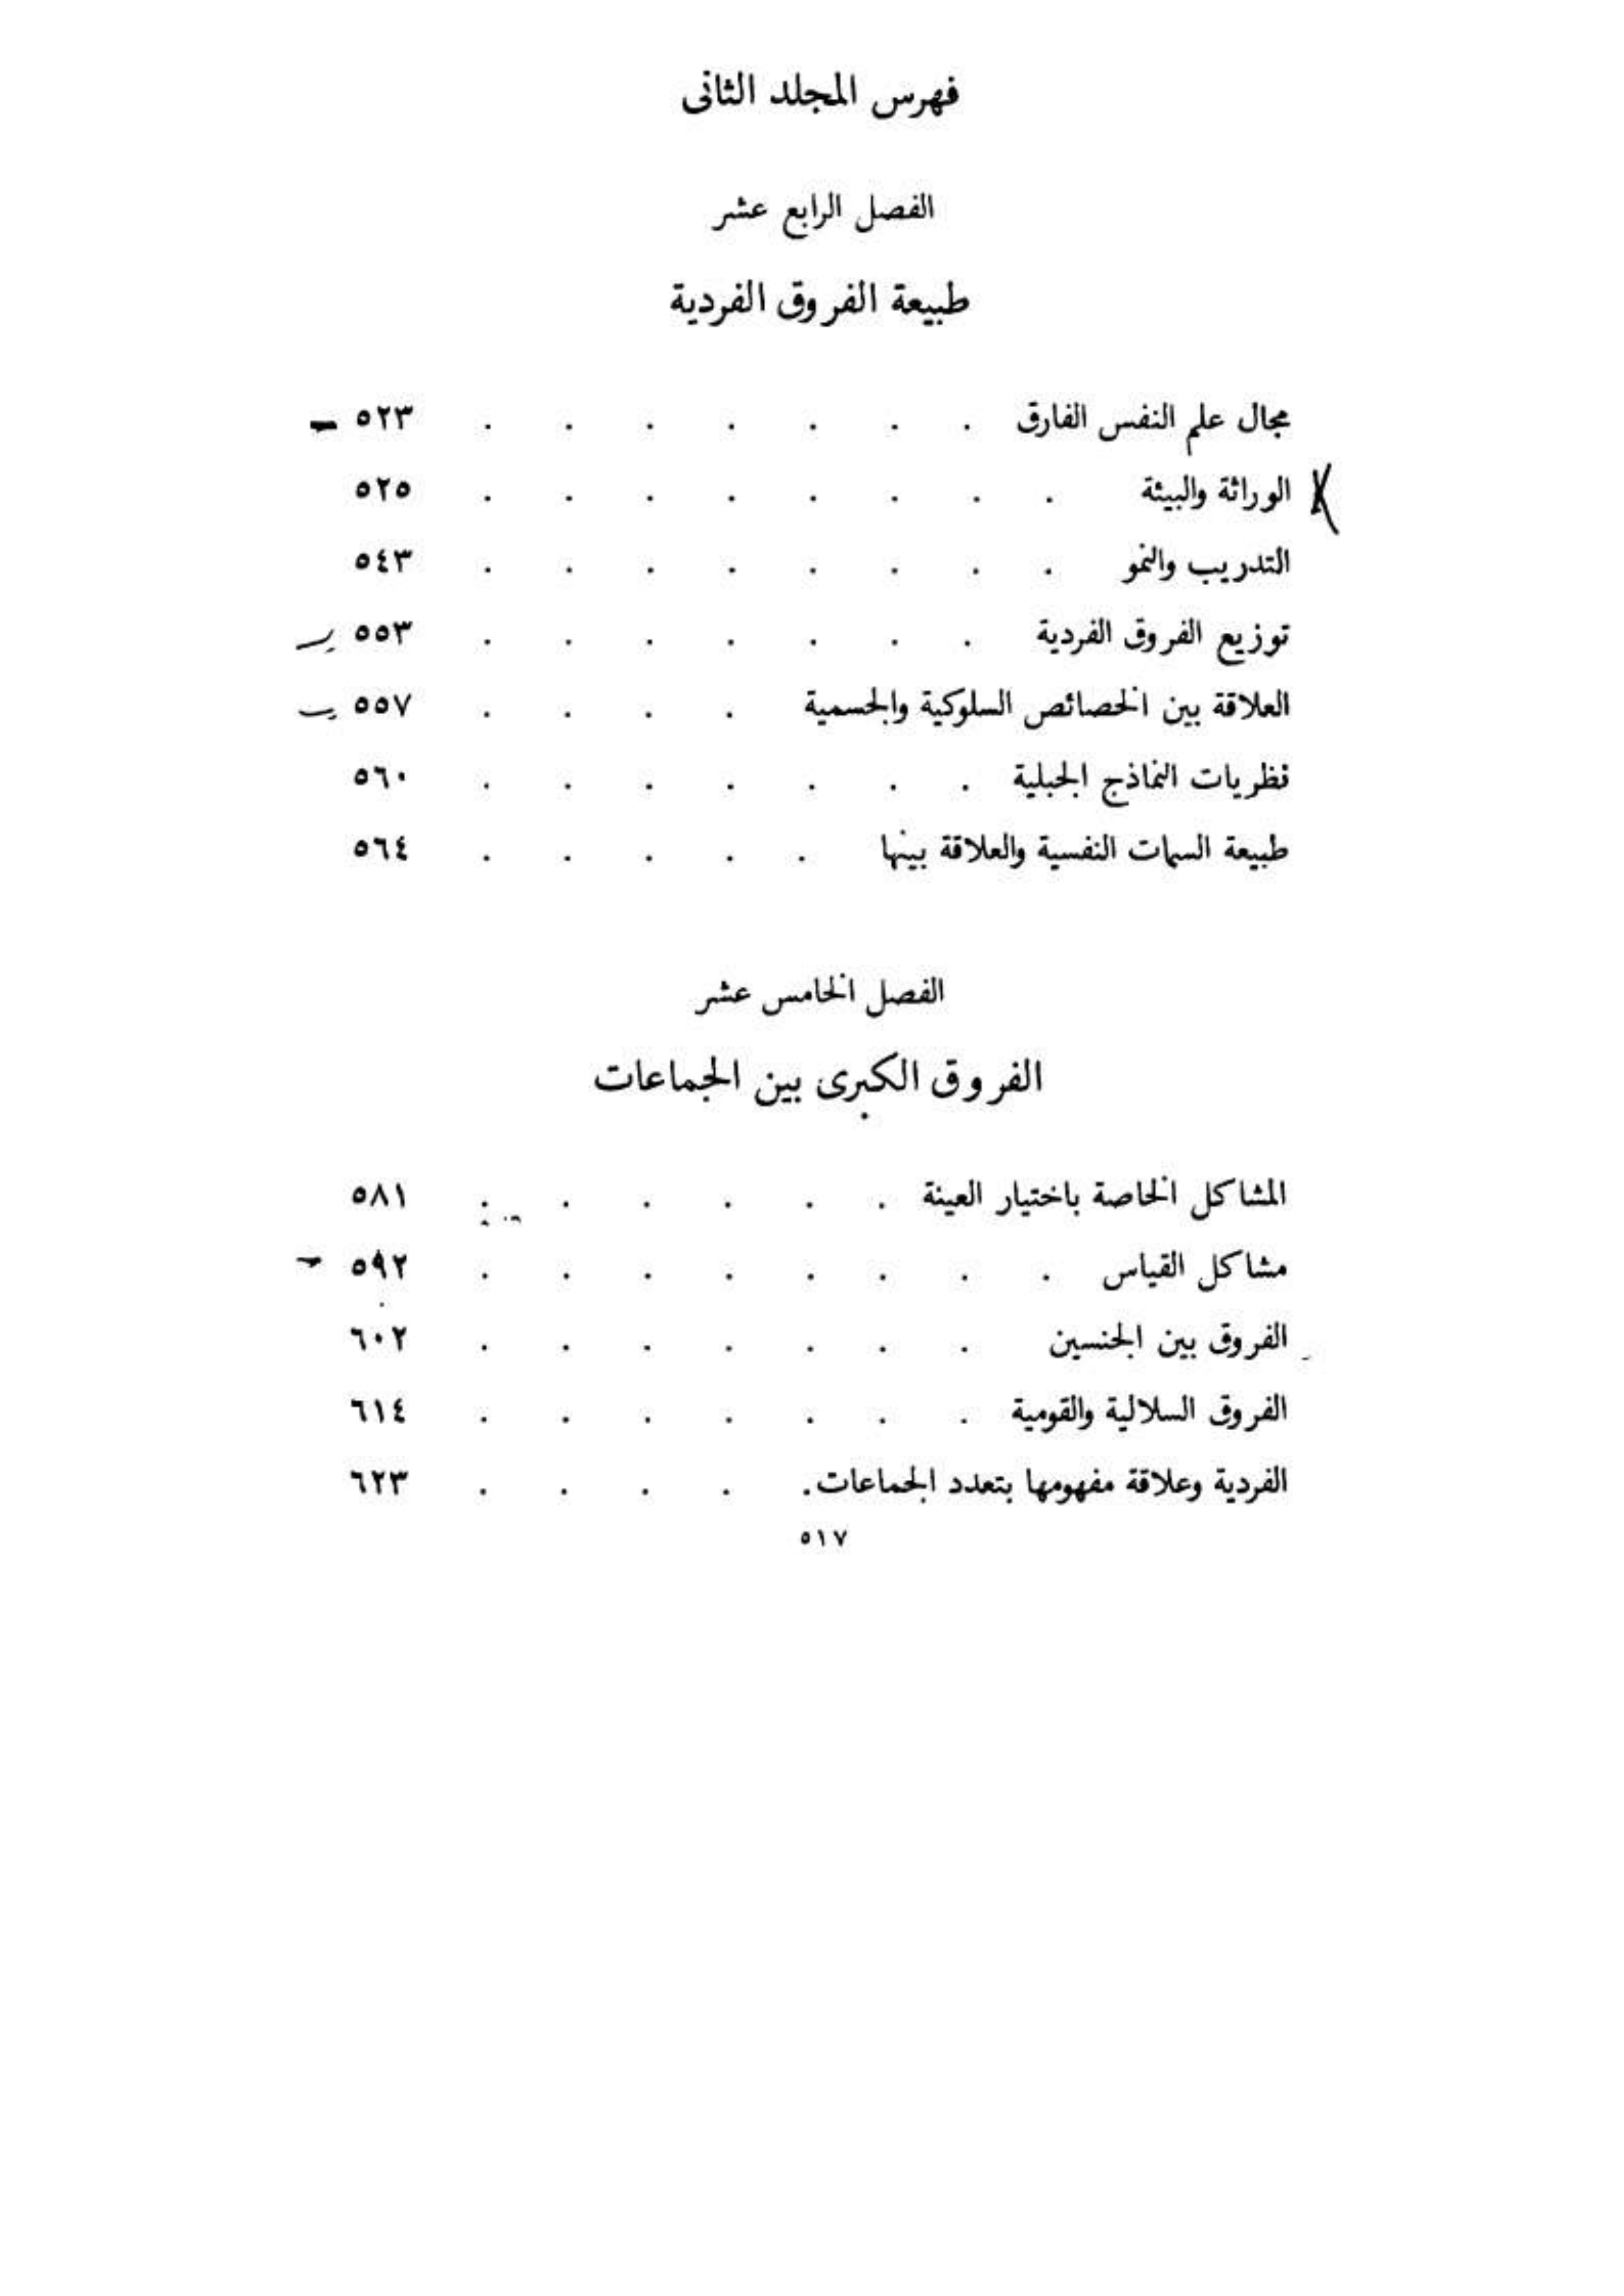 فهرس المجلد الثانى
الفصل الرابع عشر
طبيعة الفروق الفردية
مجال علم النفس الفارق . . . . . . . ٥٢٣
الوراثة والبيئة . . . . . . . . ٥٢٥
التدريب والنمو . . . . . . . . ٥٤٣
توزيع الفروق الفردية . . . . . . . ٥٥٣
العلاقة بين الخصائص السلوكية والجسمية . . . . ٥٥٧
نظريات النماذج الجبلية . . . . . . . ٥٦٠
طبيعة السمات النفسية والعلاقة بينها . . . . . ٥٦٤
الفصل الخامس عشر
الفروق الكبرى بين الجماعات
المشاكل الخاصة باختيار العينة . . . . . . ٥٨١
مشاكل القياس . . . . . . . . ٥٩٢
الفروق بين الجنسين . . . . . . . ٦٠٢
الفروق السلالية والقومية . . . . . . . ٦١٤
الفردية وعلاقة مفهومها بتعدد الجماعات . . . . . ٦٢٣
٥١٧